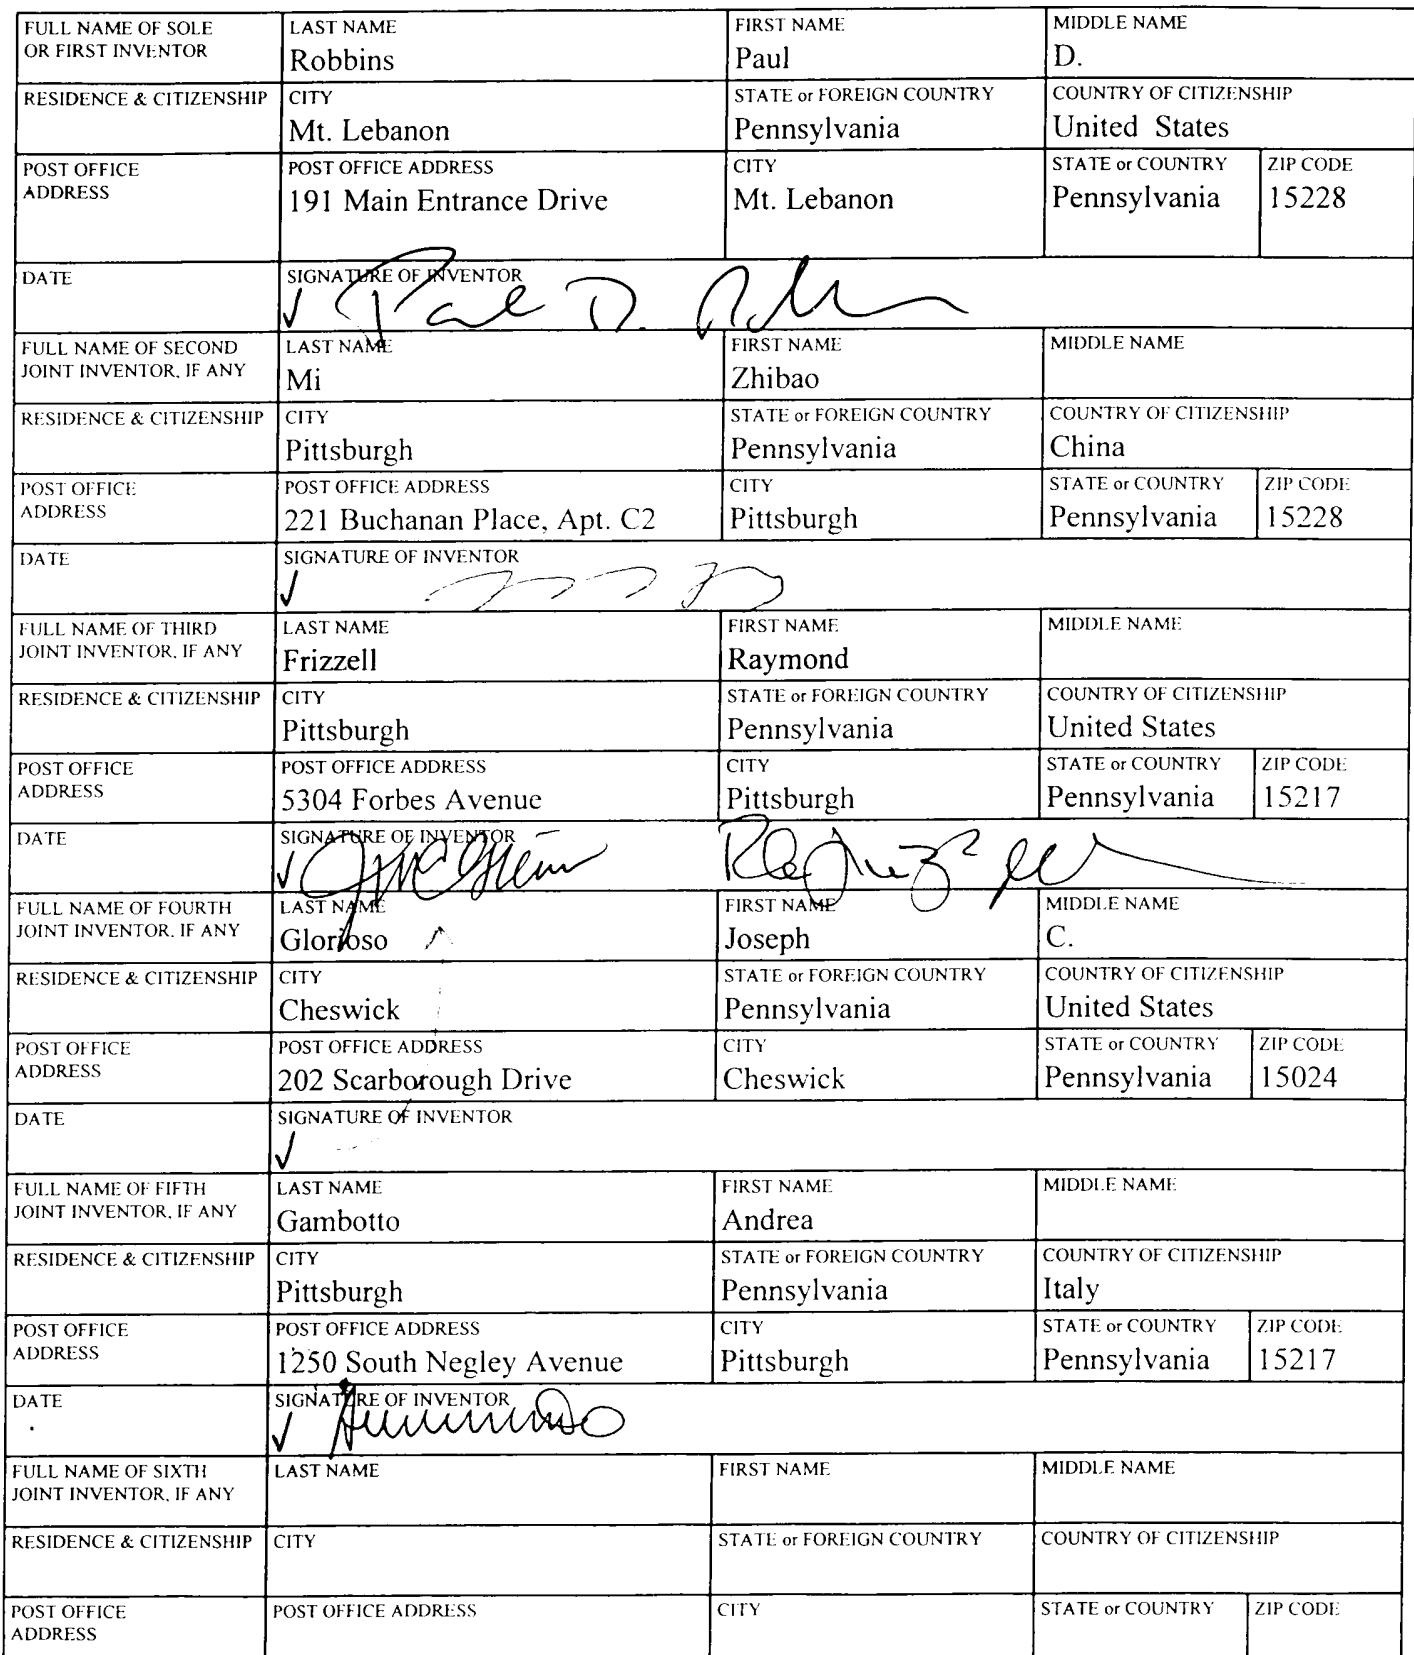 FULL NAME OF SOLE OR FIRST INVENTOR
LAST NAME Robbins
FIRST NAME Paul
MIDDLE NAME D.
RESIDENCE & CITIZENSHIP
CITY Mt. Lebanon
STATE or FOREIGN COUNTRY Pennsylvania
COUNTRY OF CITIZENSHIP United States
POST OFFICE ADDRESS
POST OFFICE ADDRESS 191 Main Entrance Drive
CITY Mt. Lebanon
STATE or COUNTRY Pennsylvania
ZIP CODE 15228
DATE
SIGNATURE OF INVENTOR
✓ Paul D. Robbins
FULL NAME OF SECOND JOINT INVENTOR, IF ANY
LAST NAME Mi
FIRST NAME Zhibao
MIDDLE NAME
RESIDENCE & CITIZENSHIP
CITY Pittsburgh
STATE or FOREIGN COUNTRY Pennsylvania
COUNTRY OF CITIZENSHIP China
POST OFFICE ADDRESS
POST OFFICE ADDRESS 221 Buchanan Place, Apt. C2
CITY Pittsburgh
STATE or COUNTRY Pennsylvania
ZIP CODE 15228
DATE
SIGNATURE OF INVENTOR
✓
FULL NAME OF THIRD JOINT INVENTOR, IF ANY
LAST NAME Frizzell
FIRST NAME Raymond
MIDDLE NAME
RESIDENCE & CITIZENSHIP
CITY Pittsburgh
STATE or FOREIGN COUNTRY Pennsylvania
COUNTRY OF CITIZENSHIP United States
POST OFFICE ADDRESS
POST OFFICE ADDRESS 5304 Forbes Avenue
CITY Pittsburgh
STATE or COUNTRY Pennsylvania
ZIP CODE 15217
DATE
SIGNATURE OF INVENTOR
✓
FULL NAME OF FOURTH JOINT INVENTOR, IF ANY
LAST NAME Glorioso
FIRST NAME Joseph
MIDDLE NAME C.
RESIDENCE & CITIZENSHIP
CITY Cheswick
STATE or FOREIGN COUNTRY Pennsylvania
COUNTRY OF CITIZENSHIP United States
POST OFFICE ADDRESS
POST OFFICE ADDRESS 202 Scarborough Drive
CITY Cheswick
STATE or COUNTRY Pennsylvania
ZIP CODE 15024
DATE
SIGNATURE OF INVENTOR
✓
FULL NAME OF FIFTH JOINT INVENTOR, IF ANY
LAST NAME Gambotto
FIRST NAME Andrea
MIDDLE NAME
RESIDENCE & CITIZENSHIP
CITY Pittsburgh
STATE or FOREIGN COUNTRY Pennsylvania
COUNTRY OF CITIZENSHIP Italy
POST OFFICE ADDRESS
POST OFFICE ADDRESS 1250 South Negley Avenue
CITY Pittsburgh
STATE or COUNTRY Pennsylvania
ZIP CODE 15217
DATE
SIGNATURE OF INVENTOR
✓
FULL NAME OF SIXTH JOINT INVENTOR, IF ANY
LAST NAME
FIRST NAME
MIDDLE NAME
RESIDENCE & CITIZENSHIP
CITY
STATE or FOREIGN COUNTRY
COUNTRY OF CITIZENSHIP
POST OFFICE ADDRESS
POST OFFICE ADDRESS
CITY
STATE or COUNTRY
ZIP CODE